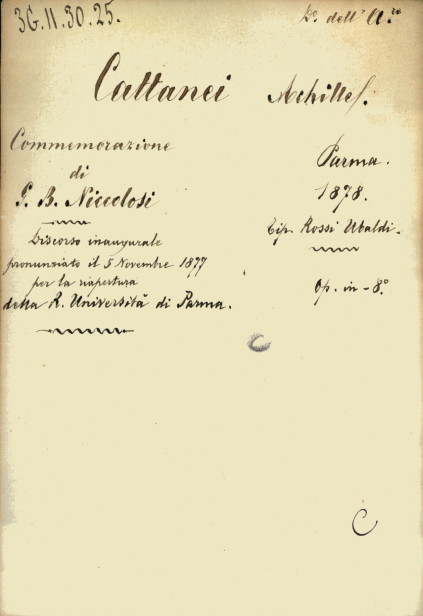 3G.11.30.25.
Do. dell' A.re
Cattanei Achille.
Commemorazione
di
G. B. Niccolosi
Discorso inaugurale
pronunziato il 5 Novembre 1877
per la riapertura
della R. Università di Parma.
Parma.
1878.
Tip. Rossi Ubaldi.
Op. in-8.°
C